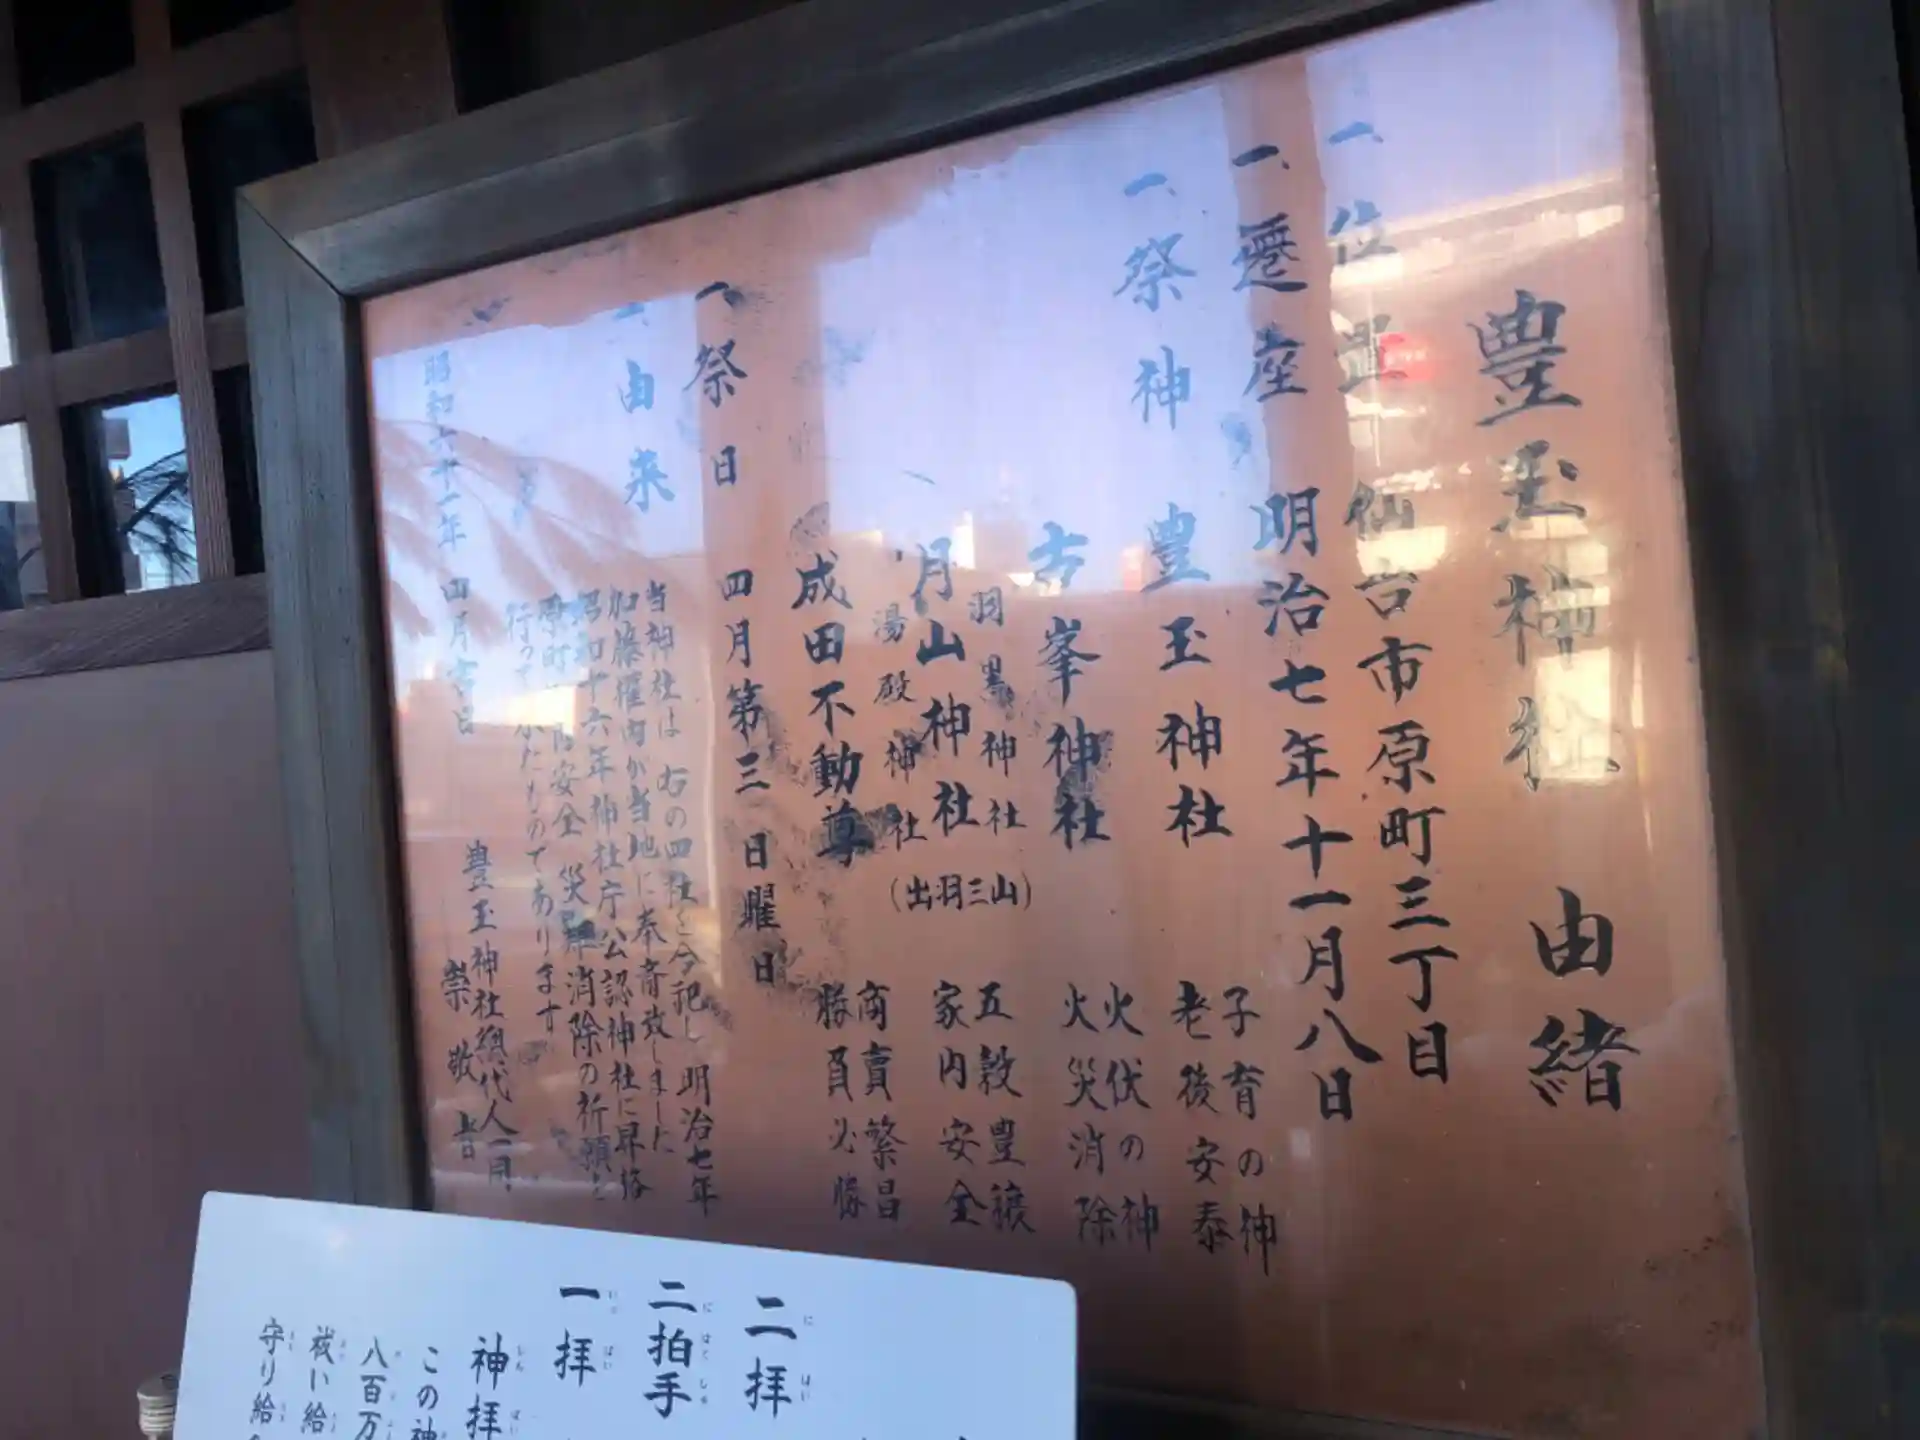 豊玉神社 由緒
一、位置 仙台市原町三丁目
一、遷座 明治七年十一月八日
一、祭神 豊玉神社 子育の神 老後安泰
古峯神社 火伏の神 火災消除
羽黒神社
月山神社 (出羽三山) 五穀豊穣 家内安全
湯殿神社
成田不動尊 商賣繁昌 勝負必勝
一、祭日 四月第三日曜日
一、由来
当神社は 右の四社を今祀し 明治七年
加藤権 が当地に奉斎致しました
昭和十六年神社庁公認神社に昇格
原町 内安全 災難消除の祈願を
行って たものであります
昭和六十一年 四月吉日
豊玉神社総代人一同
崇敬者
二拝
二拍手
一拝
神拝
この神
八百万
祓い給
守り給